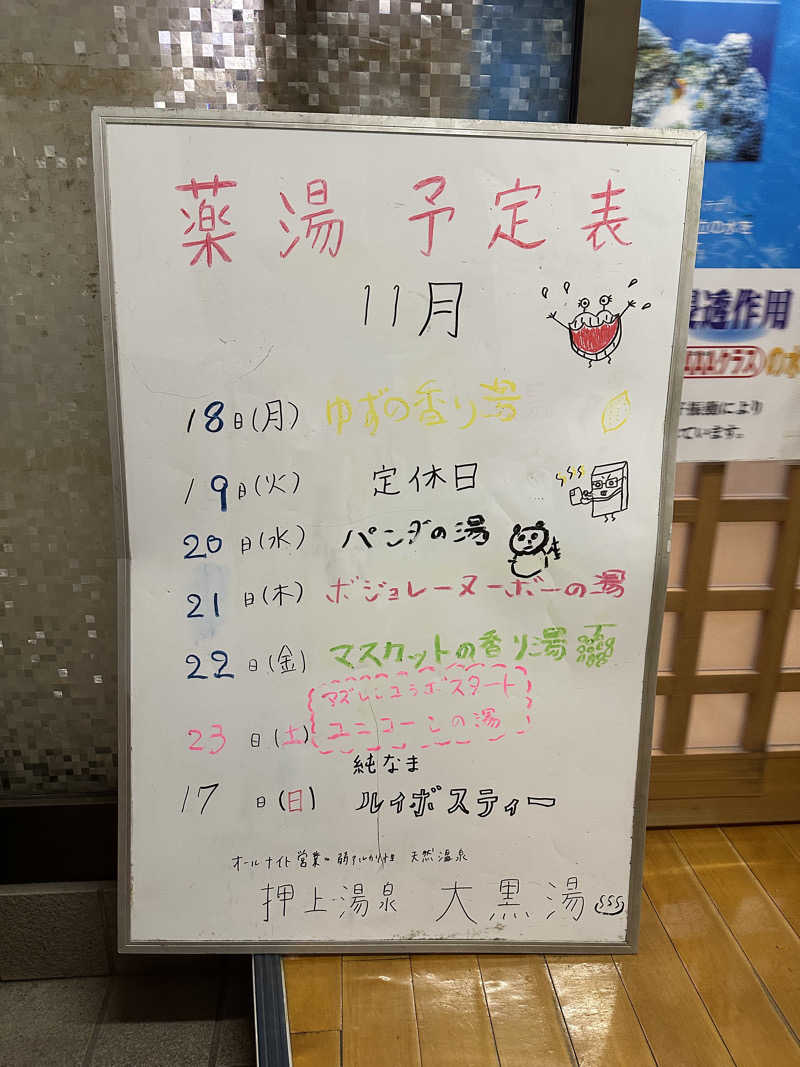 薬湯 予定表
11月
18日(月) ゆずの香り湯
19日(火) 定休日
20日(水) パンダの湯
21日(木) ボジョレーヌーボーの湯
22日(金) マスカットの香り湯
マズレンコラボスタート
23日(土) ユニコーンの湯
純なま
17日(日) ルイボスティー
オールナイト営業 弱アルカリ性 天然温泉
押上温泉 大黒湯
透作用
クラス の水
により
ています。